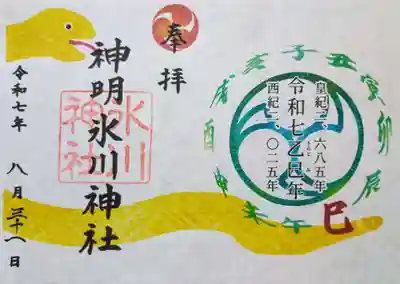 子丑寅卯辰巳午未申酉戌亥
皇紀二、六八五年
令和七乙巳年
西紀二、〇二五年
奉拝
神明氷川神社
氷川
神社
令和七年 八月三十一日